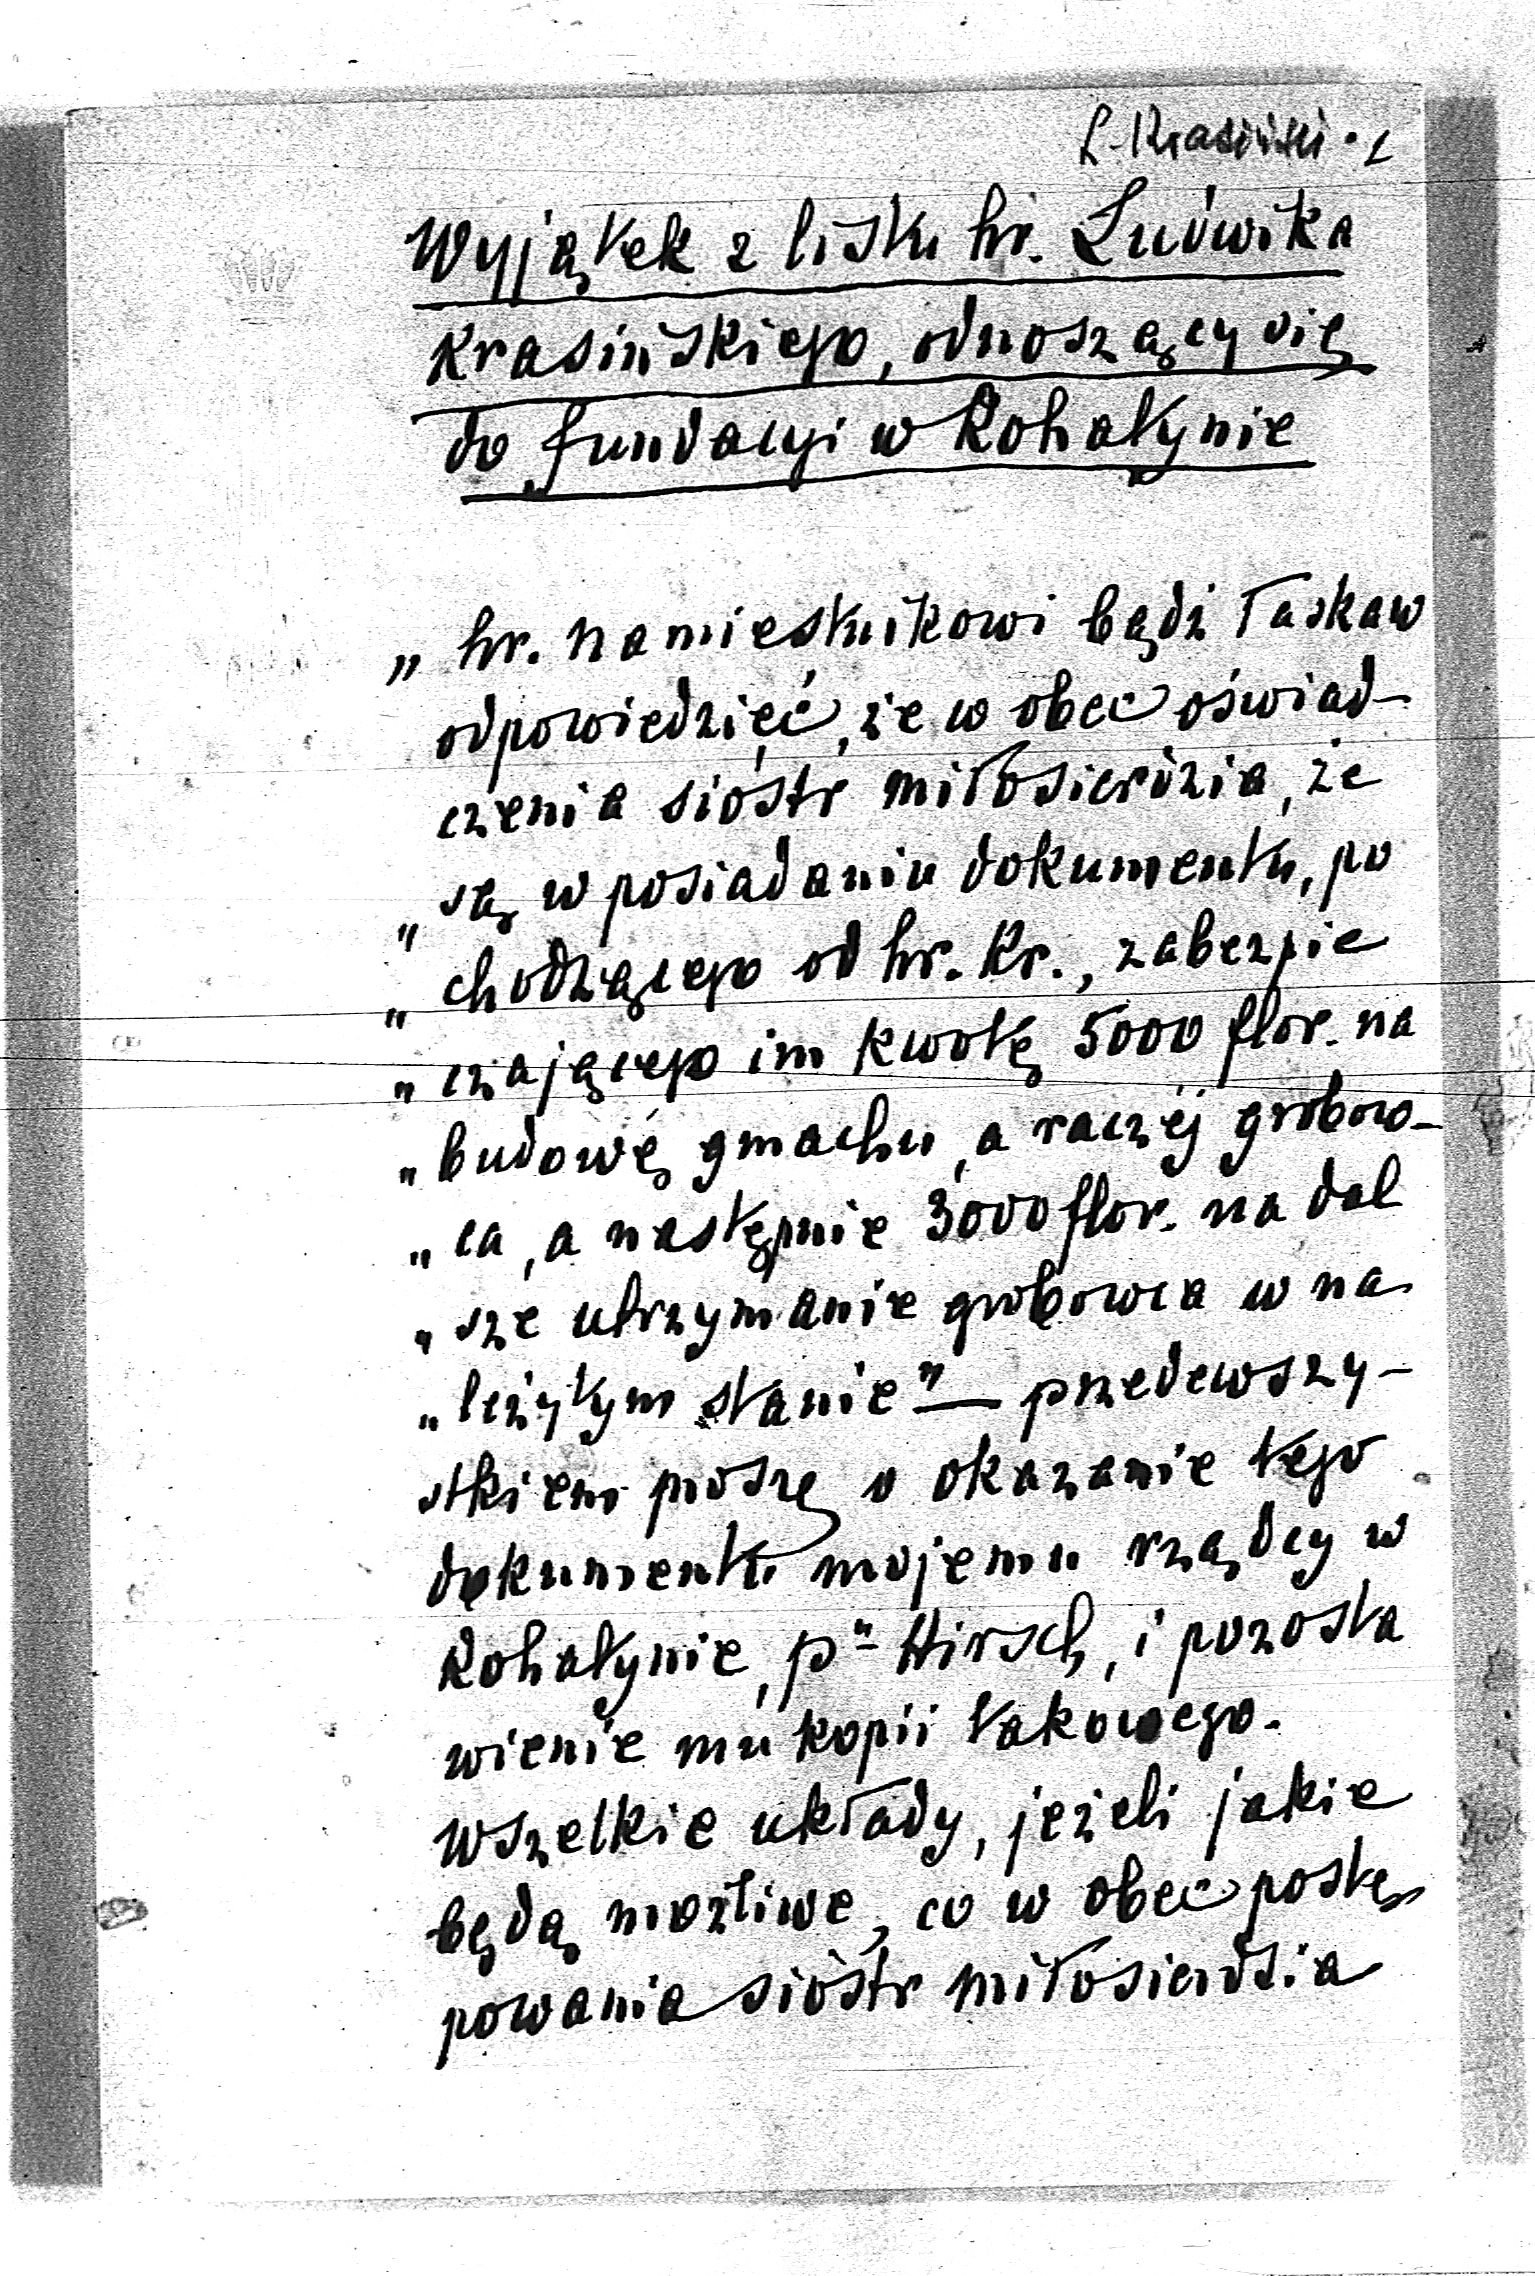 L. Krasiński. 1
Wyjątek z listu hr. Ludwika
Krasińskiego, odnoszący się
do fundacyi w Rohatynie
„ hr. Namiestnikowi bądź łaskaw
odpowiedzieć, że w obec oświad-
czenia sióstr miłosierdzia, że
„ są w posiadaniu dokumentu, po
„ chodzącego od hr. Kr., zabezpie
„ czającego im kwotę 5000 flor. na
„ budowę gmachu, a raczéj grobow-
„ ca, a następnie 3000 flor. na dal
„ sze utrzymanie grobowca w na
„ leżytym stanie" — przedewszy-
stkiem proszę o okazanie tego
dokumentu mojemu rządcy w
Rohatynie, pⁿ Hirsch, i pozosta
wienie mu kopii takowego.
Wszelkie układy, jeżeli jakie
będą możliwe, co w obec postę
powania sióstr miłosierdzia